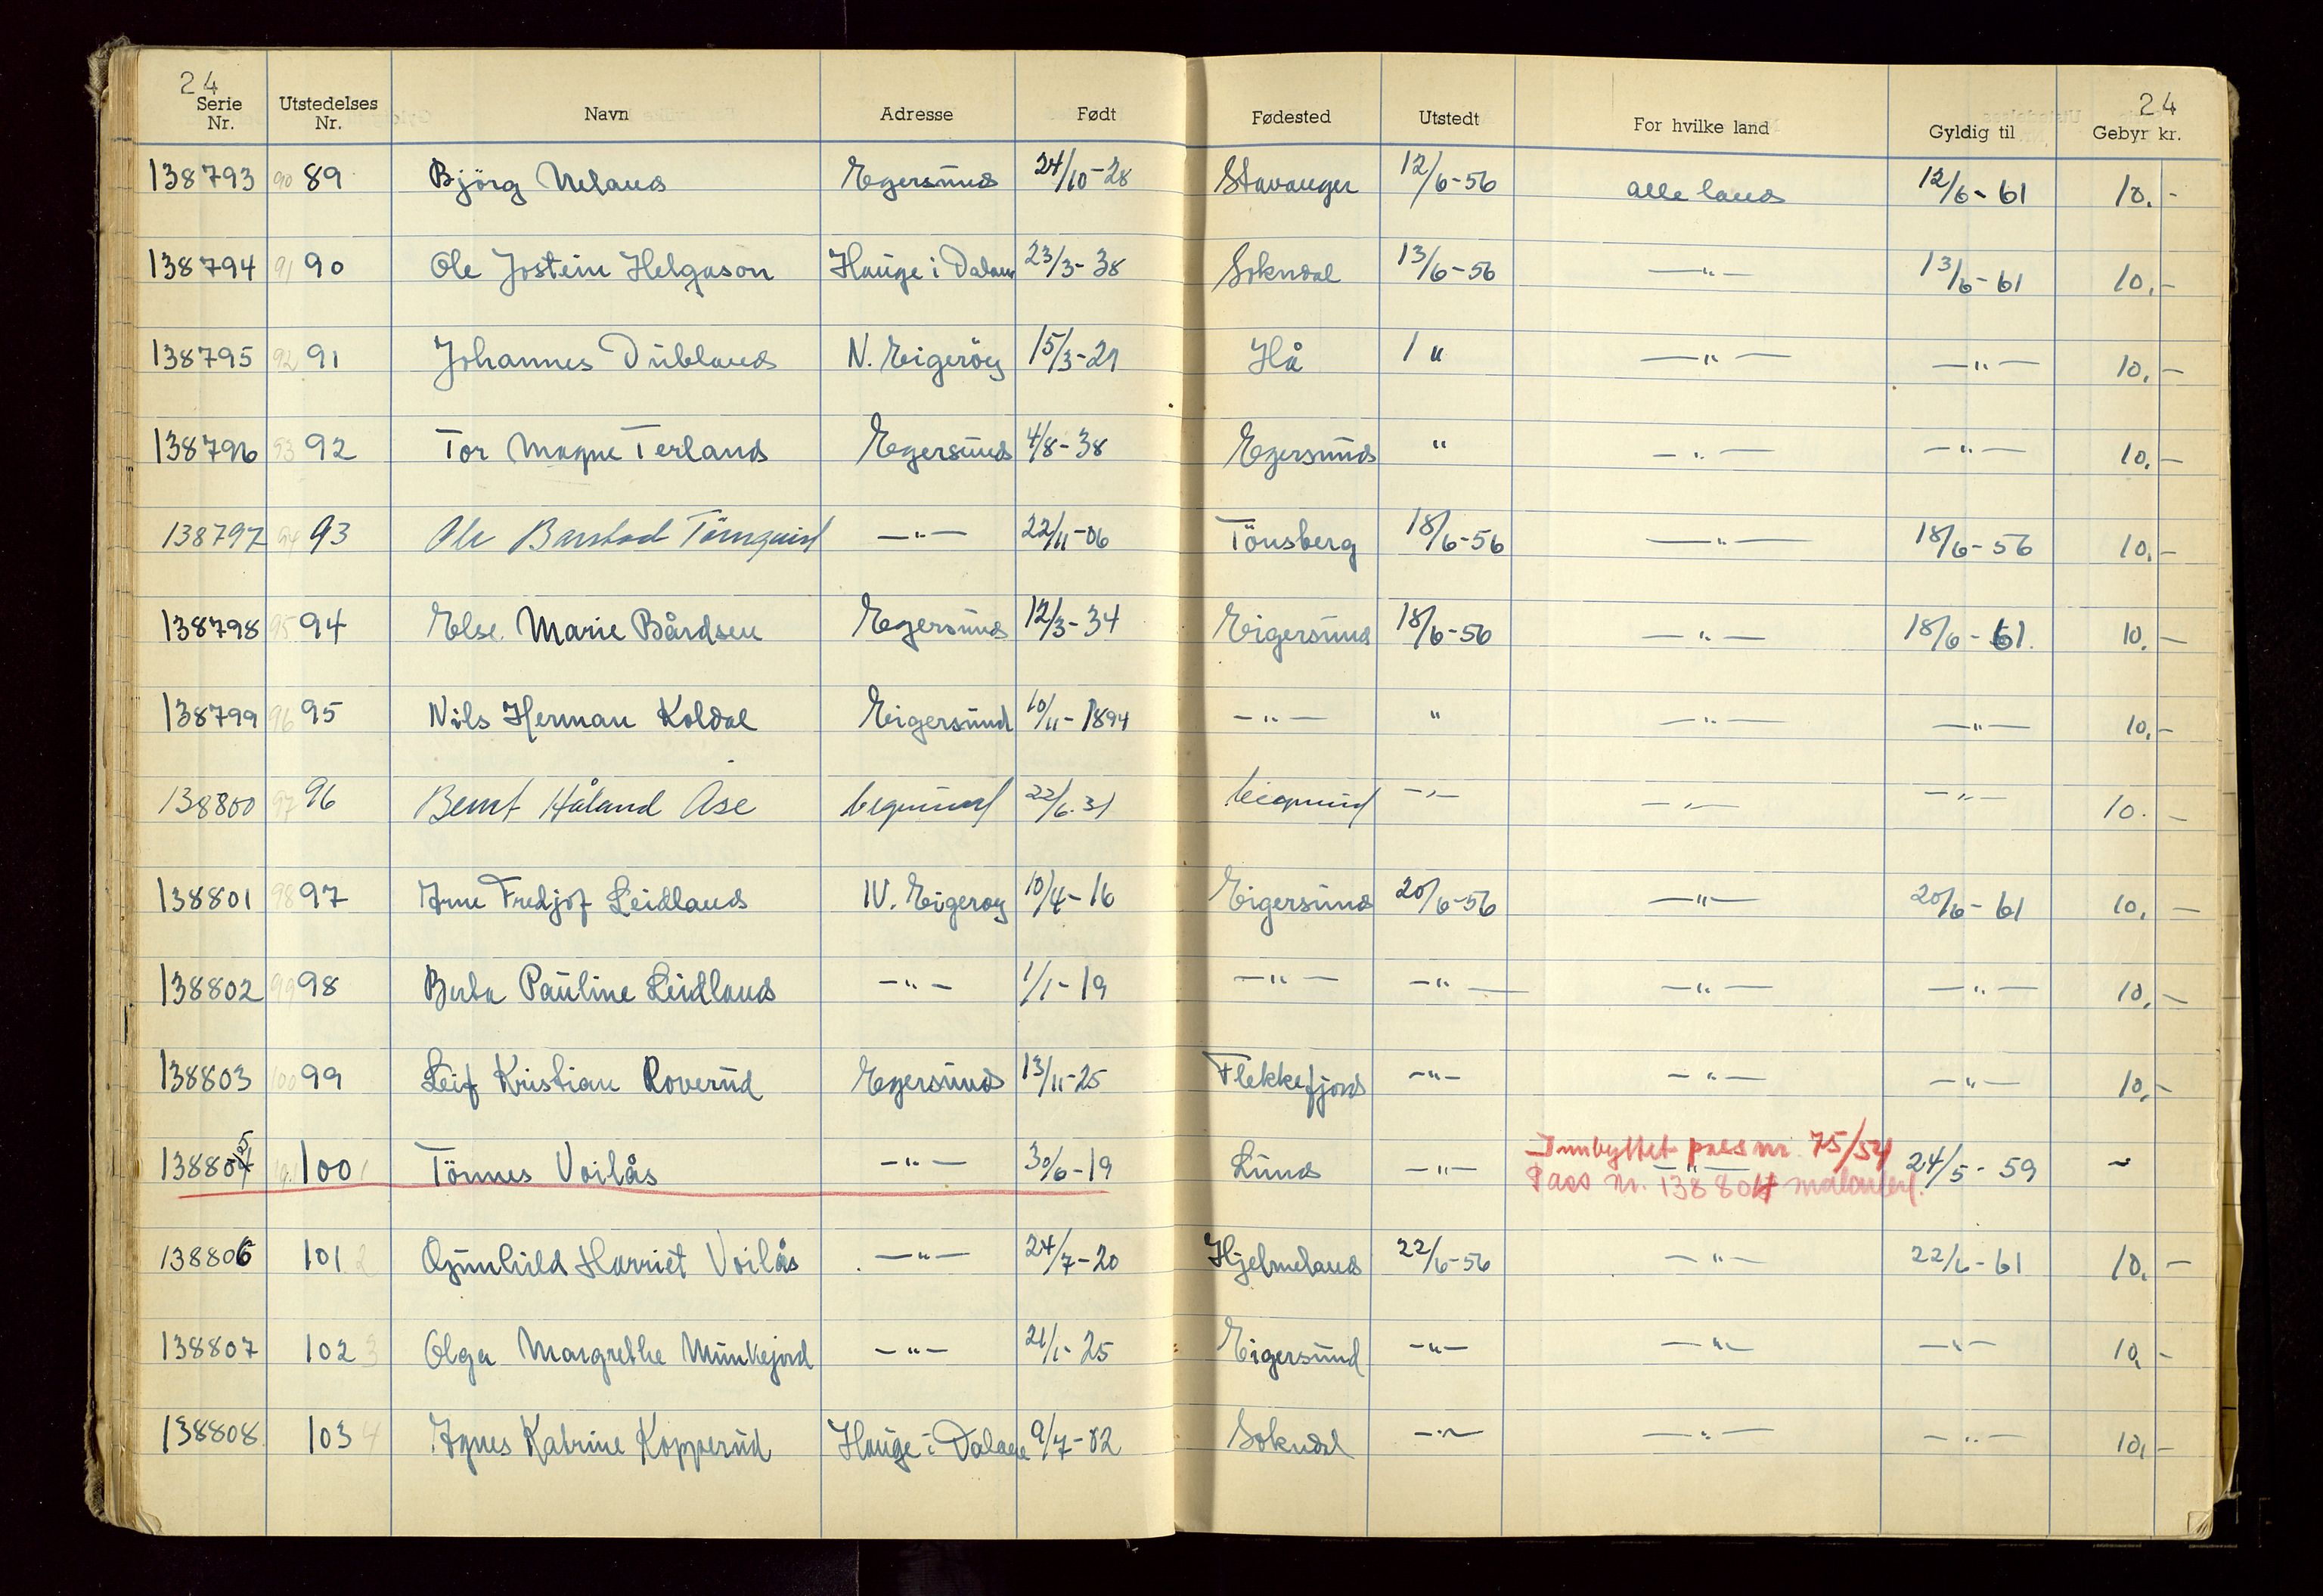 24 24
Serie Nr. Utstedelses Nr. Navn Adresse Født Fødested Utstedt For hvilke land Gyldig til Gebyr kr.
138793 90 89 Björg Egersund 24/10-28 Stavanger 12/6-56 alle land 12/6-61 10.-
138794 91 90 Ole Jostein Helgason Hauge i Dalane 23/3-38 Sokndal 13/6-56 —"— 13/6-61 10.-
138795 92 91 Johannes Dubland N. Eigeröy 15/3-21 Hå " —"— —"— 10.-
138796 93 92 Tor Magne Terland Egersund 4/8-38 Egersund " —"— —"— 10.-
138797 94 93 Ole Barstad Törnquist —"— 22/11-06 Tönsberg 18/6-56 —"— 18/6-56 10.-
138798 95 94 Else Marie Bårdsen Egersund 12/3-34 Eigersund 18/6-56 —"— 18/6-61. 10.-
138799 96 95 Nils Herman Koldal Eigersund 10/11-1894 —"— " —"— —"— 10.-
138800 97 96 Bernt Håland Åse Eigersund 22/6.31 Eigersund —"— —"— —"— 10.-
138801 98 97 Arne Fredjof Leidland N. Eigeroy 10/4-16 Eigersund 20/6-56 —"— 20/6-61 10.-
138802 99 98 Berta Pauline Leidland —"— 1/1-19 —"— —"— —"— —"— 10.-
138803 100 99 Leif Kristian Roverud Egersund 13/11-25 Flekkefjord —"— —"— —"— 10.-
138805 101 100 Tönnes Voilås —"— 30/6-19 Lund —"— Innbyttet pass nr. 75/54 24/5-59 -
Pass nr. 138804 makulert.
138806 101 2 Gunhild Harriet Voilås —"— 24/7-20 Hjelmeland 22/6-56 —"— 22/6-61 10.-
138807 102 3 Olga Margrethe Munkejord —"— 21/1-25 Eigersund —"— —"— —"— 10.-
138808 103 4 Agnes Katrine Kopperud Hauge i Dalane 9/7-02 Sokndal —"— —"— —"— 10.-